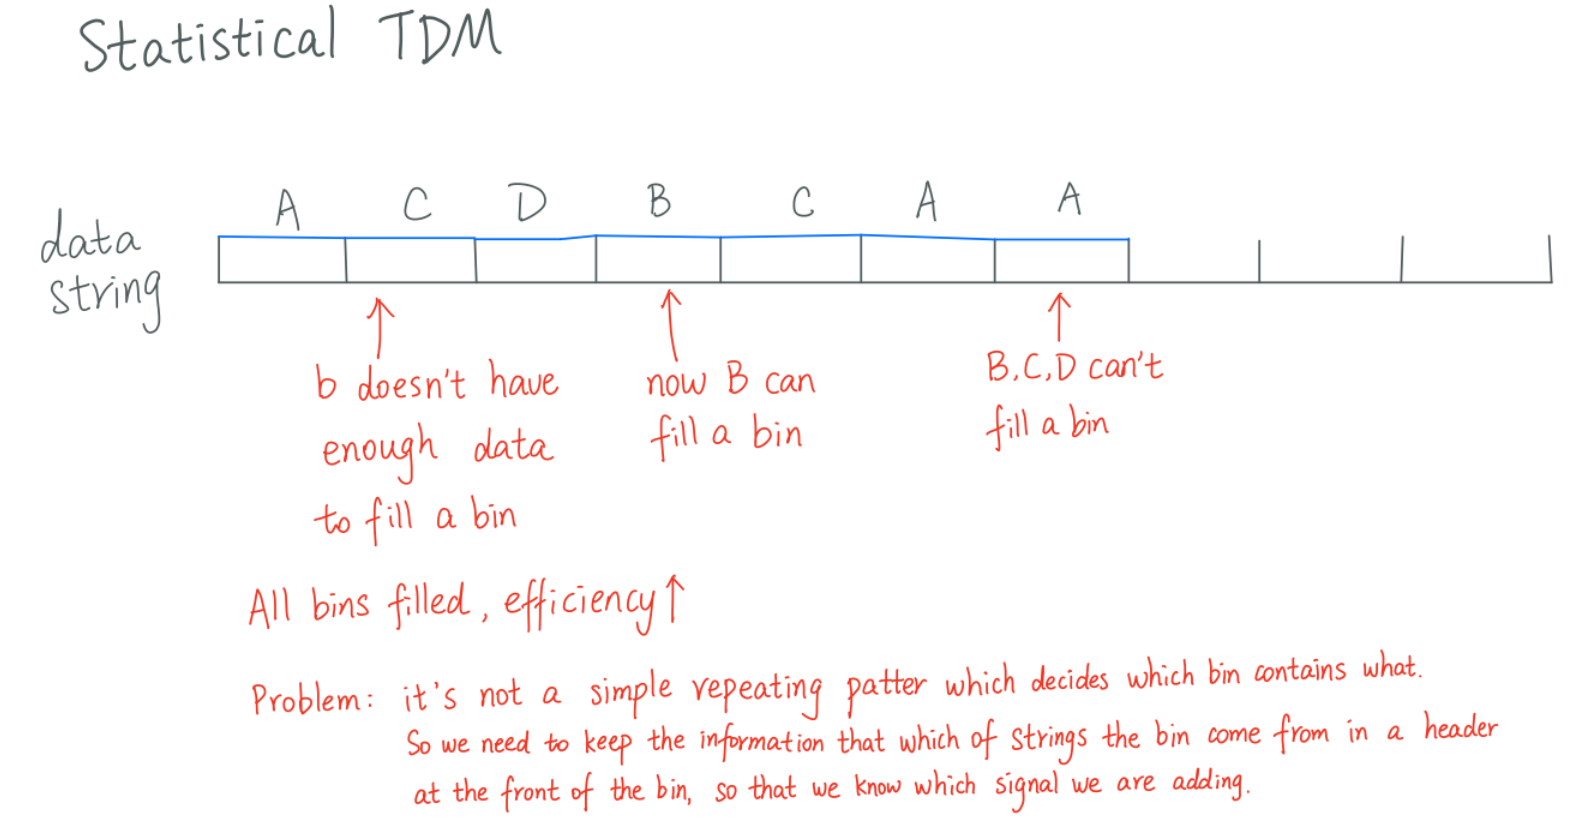 Statistical TDM
A C D B C A A
data
string
b doesn't have
enough data
to fill a bin
now B can
fill a bin
B.C,D can't
fill a bin
All bins filled, efficiency↑
Problem: it's not a simple repeating patter which decides which bin contains what.
So we need to keep the information that which of strings the bin come from in a header
at the front of the bin, so that we know which signal we are adding.